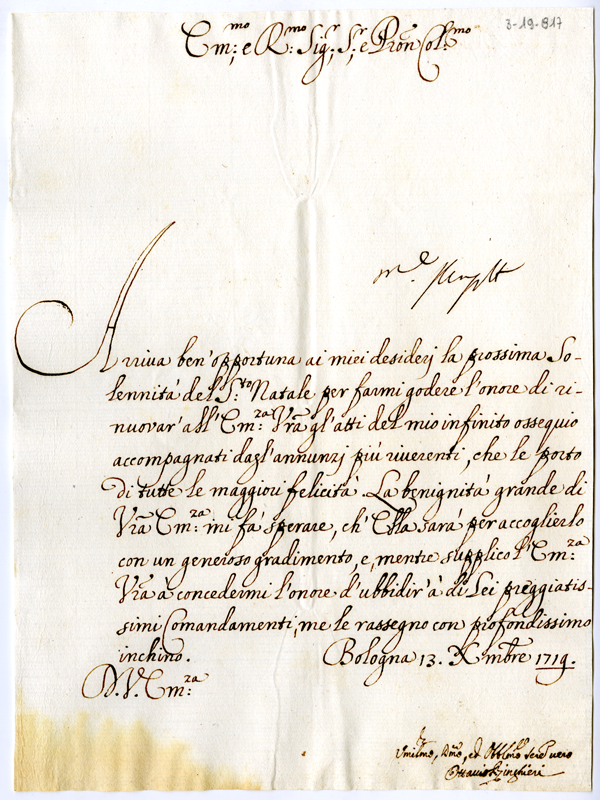 3-19-817
Em:mo e R:mo Sig:r, S:r e Pron Col:mo
Arriva ben' opportuna ai miei desiderj la prossima So-
lennitá del S:to Natale per farmi godere l'onore di ri-
nuovar' all' Em:za Vrã gl'atti del mio infinito ossequio
accompagnati dagl'annunzj piú riverenti, che le porto
di tutte le maggiori felicitá. La benignitá grande di
Vrã Em:za mi fá sperare, ch' Ella sará per accoglierlo
con un generoso gradimento, e, mentre supplico l'Em:za
Vrã à concedermi l'onore d'ubbidir' à di Lei preggiatis-
simi Comandamenti, me le rassegno con profondissimo
inchino. Bologna 13. Xmbre 1719.
D. V. Em:za
Umilmo, Dmo, et Obblmo Ser vero